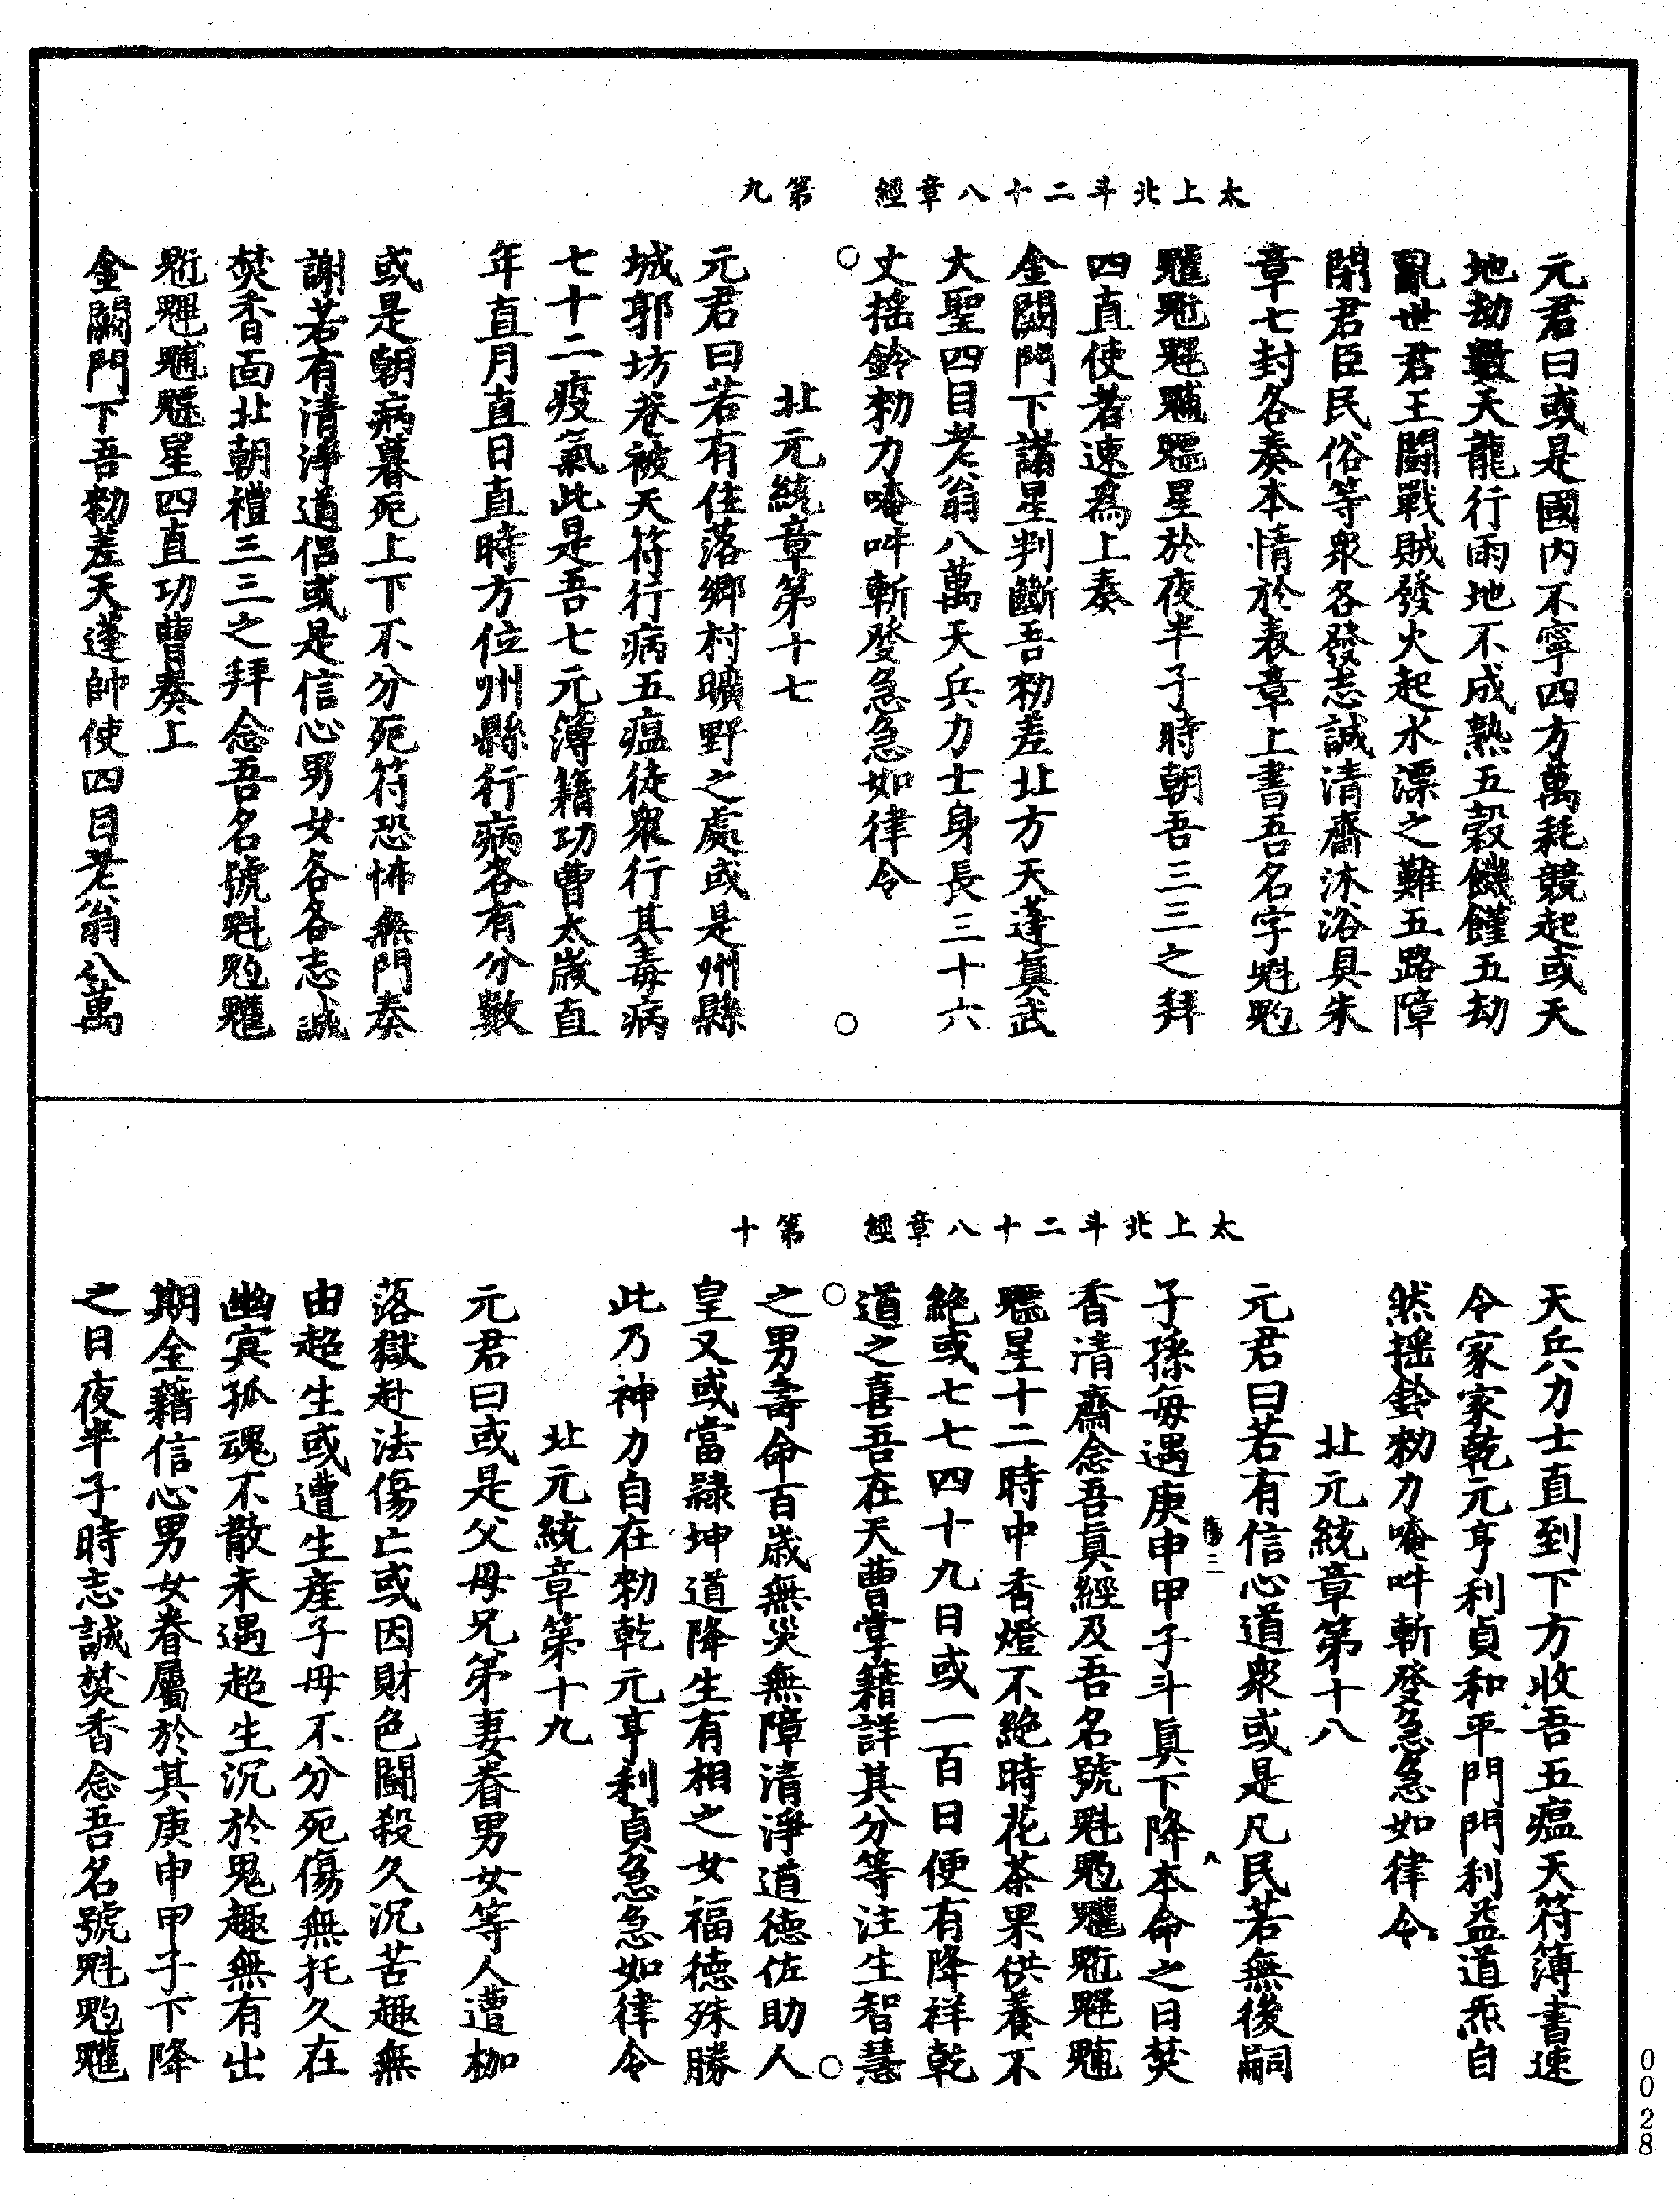 太上北斗二十八章經　第九
元君曰或是國內不寧四方萬耗競起或天
地劫數天龍行雨地不成熟五穀饑饉五劫
亂世君王鬪戰賊發火起水漂之難五路障
閉君臣民俗等眾各發志誠清齋沐浴具朱
章七封各奏本情於表章上書吾名字魁𩲃
魒星於夜半子時朝吾三三之拜
四直使者速為上奏
金闕門下諸星判斷吾勑差北方天蓬真武
大聖四目老翁八萬天兵力士身長三十六
丈搖鈴勑力唵吽斬發急急如律令
北元統章第十七
元君曰若有住落鄉村曠野之處或是州縣
城郭坊巷被天符行行病五瘟徒眾行其毒病
七十二疫氣此是吾七元簿籍功曹太歲直
年直月直日直時方位州縣行病各有分數
或是朝病暮死上下不分死符恐怖無門奏
謝若有清淨道侶或是信心男女各各志誠
焚香面北朝禮三三之拜念吾名號魁
星四直功曹奏上
金闕門下吾勑差天蓬帥使四目老翁八萬
太上北斗二十八章經　第十
天兵力士直到下方收吾五瘟天符簿書速
令家家乾元亨利貞和平門門利益道炁自
然搖鈴勑力唵吽斬發急急如律令
北元統章第十八
元君曰若有信心道眾或是凡民若無後嗣
子孫每遇庚申甲子斗真下降本命之日焚
香清齋念吾真經及吾名號魁
星十二時中香燈不絕時花茶果供養不
絕或七七四十九日或一百日便有降祥乾
道之喜吾在天曹掌籍詳其分等注生智慧
之男壽命百歲無災無障清淨道德佐助人
皇又或當隸坤道降生有相之女福德殊勝
此乃神力自在勑乾元亨利貞急急如律令
北元統章第十九
元君曰或是父母兄弟妻眷男女等人遭枷
落獄赴法傷亡或因財色鬪殺久沉苦趣無
由超生或遭生產子母不分死傷無托久在
幽冥孤魂不散未遇超生沉於鬼趣無有出
期全藉信心男女眷屬於其庚申甲子下降
之日夜半子時志誠焚香念吾名號魁
0028